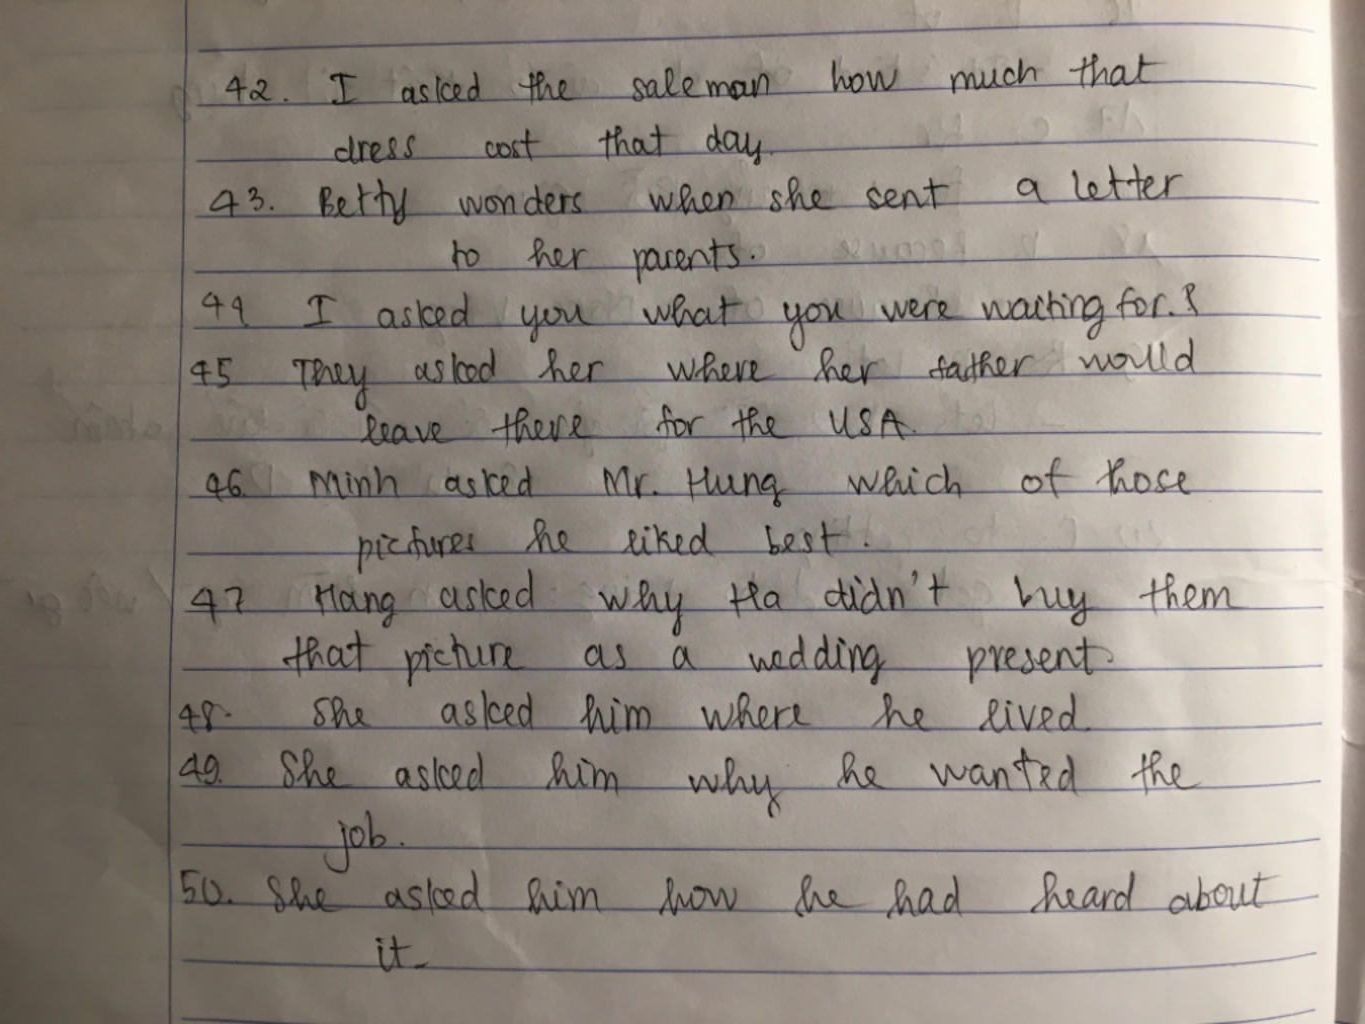 42. I asked the saleman how much that
dress cost that day.
43. Betty wonders when she sent a letter
to her parents.
44 I asked you what you were waiting for.?
45 They asked her where her father would
leave there for the USA.
46. Minh asked Mr. Hung which of those
pictures he liked best.
47 Hang asked why Ha didn't buy them
that picture as a wedding present.
48. She asked him where he lived.
49. She asked him why he wanted the
job.
50. She asked him how he had heard about
it.